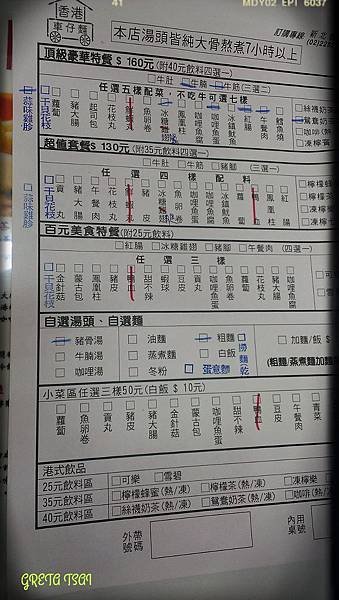 41
MDY02 EPI 6037
香港
車仔麵
本店湯頭皆純大骨熬煮7小時以上
訂購專線
新北
(02)22
頂級豪華特餐 $ 160元(附40元飲料四選一)
牛肚 牛腩 牛筋(三選二)
任選五樣配菜，不吃牛可選七樣
蘿蔔 豬大腸 起司包 花枝丸 魚卵卷 咖哩魚蛋 午餐肉 鱈魚燒
絲襪奶茶
鴛鴦奶茶
咖啡(熱
檸檬
蒜味雞胗
干貝花枝
超值套餐$ 130元(附35元飲料四選一)
牛肚 牛筋 豬腳 (三選一)
任選四樣配料
貢丸 豬大腸 午餐肉 花枝丸 豬皮 魚卵卷 咖哩魚蛋 冰鎮魷魚 鴨血 鳳凰柱 紅腸
檸檬蜂
檸檬茶
凍檸
蒜味雞胗
干貝花枝
百元美食特餐(附25元飲料)
紅腸 冰糖雞翅 豬腳 午餐肉 (四選一)
任選三樣
金針菇 蒙古包 鳳凰柱 豬皮 鴨血 甜不辣 蝦球 豆皮 貢丸 咖哩魚蛋 花枝丸
干貝花枝
自選湯頭、自選麵
豬骨湯 油麵 粗麵 加麵/飯 $
牛腩湯 蒸煮麵 白飯
咖哩湯 冬粉 蛋意麵
撈麵乾
(粗麵/蒸煮麵加麵
小菜區任選三樣50元(白飯 $ 10元)
蘿蔔 魚卵卷 貢丸 豬皮 豬大腸 金針菇 蒙古包 咖哩魚蛋 甜不辣 鴨血 豆皮 午餐肉 青菜
港式飲品
25元飲料區 可樂 雪碧
35元飲料區 檸檬蜂蜜(熱/凍) 檸檬茶(熱/凍) 凍檸樂
40元飲料區 絲襪奶茶(熱/凍) 鴛鴦奶茶(熱/凍) 咖啡(熱/
外帶號碼
內用桌號
GRETA TSAI